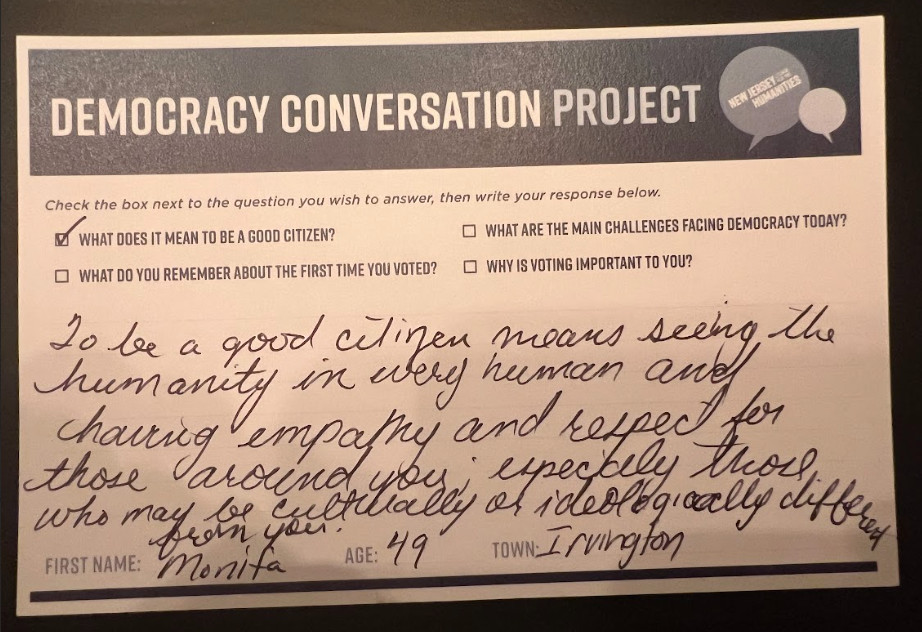 DEMOCRACY CONVERSATION PROJECT
NEW JERSEY
HUMANITIES
Check the box next to the question you wish to answer, then write your response below.
WHAT DOES IT MEAN TO BE A GOOD CITIZEN?
WHAT ARE THE MAIN CHALLENGES FACING DEMOCRACY TODAY?
WHAT DO YOU REMEMBER ABOUT THE FIRST TIME YOU VOTED?
WHY IS VOTING IMPORTANT TO YOU?
To be a good citizen means seeing the
humanity in every human and
having empathy and respect for
those around you, especially those
who may be culturally or ideologically different
from you.
FIRST NAME: Monifa AGE: 49 TOWN: Irvington